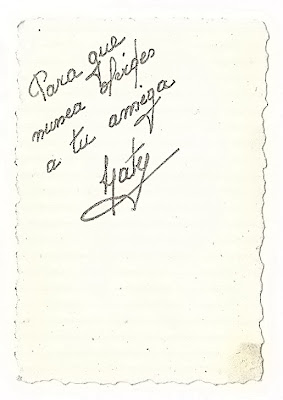 Para que
nunca Olvides
a tu amiga
Katy